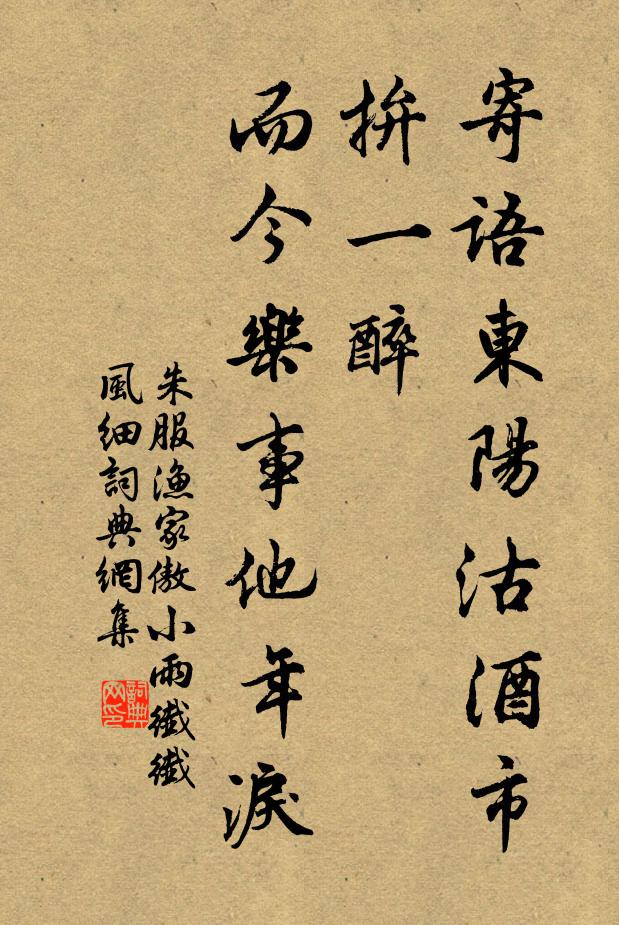 寄語東陽沽酒市
拚一醉
而今樂事他年淚
朱服漁家傲小雨纖纖
風細詞典網集
詞典网印